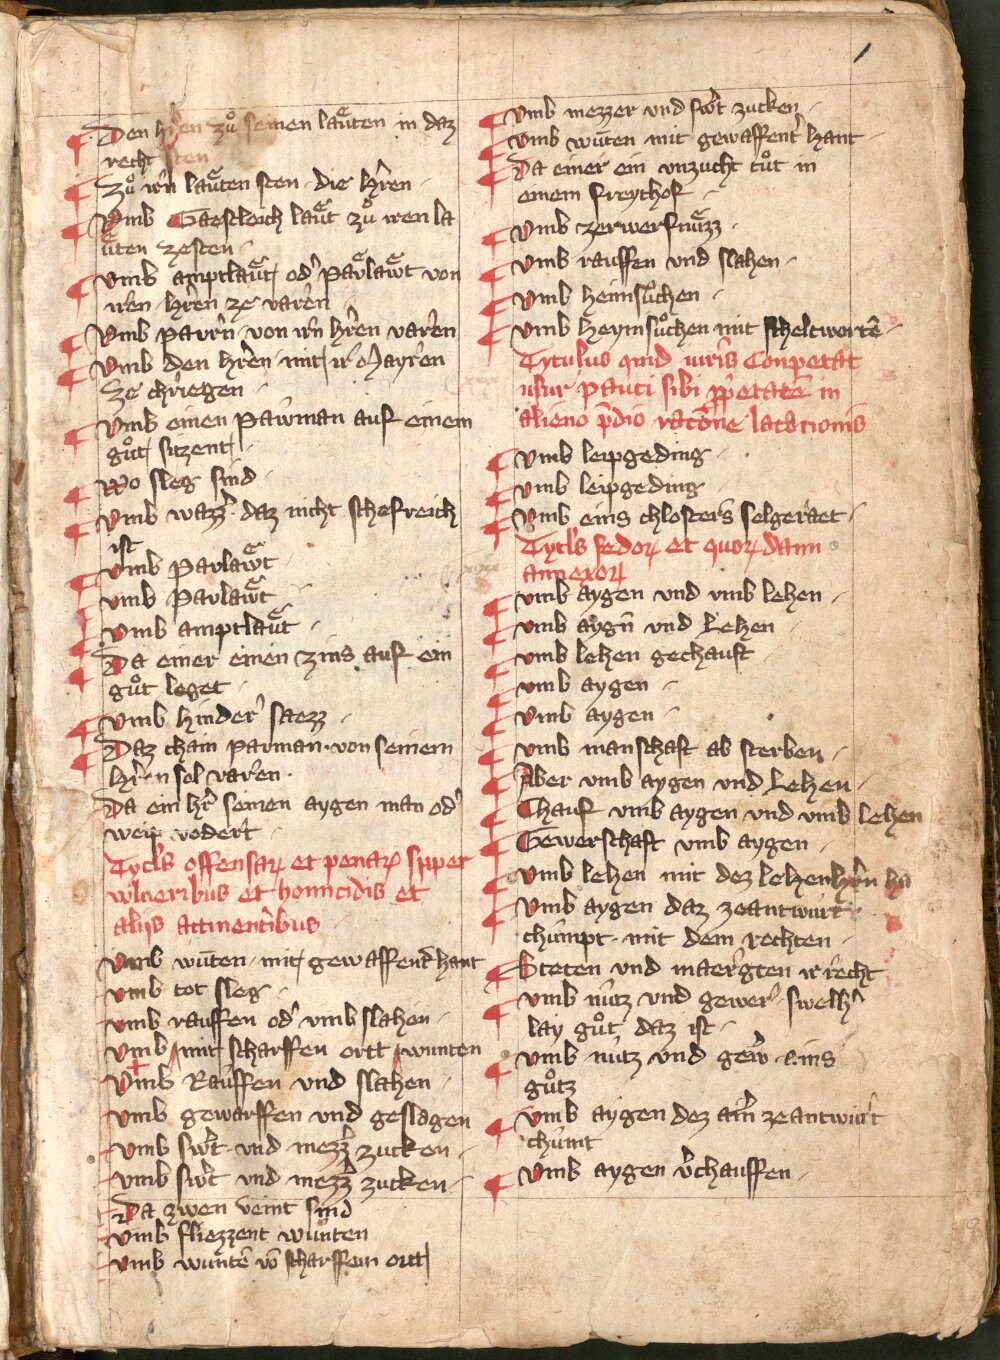 1
Den hr̄en zů seinen laͤuten in daz
recht sten
Zů irn laͤuten sten die hr̄en
Vmb Gaestleich laͤut zů iren la
ͤuten zesten
vmb amptlaͤut od' paͤrlaͤwt von
irēn hr̄en ze varēn
Vmb paẅrn von irn hr̄en varēn
Vmb den hr̄en mit ir Mayrēn
ze chriegen
Vmb einen Paẅman auf einem
gůt sitzent
Wo sleg sind
Vmb wazz' daz nicht schefreich
ist
vmb Parlaͤwt
vmb Parlaͤwt
Vmb amptlaͤut
Da einer einen zins auf ein
gůt leget
Vmb hinder' saezz
Daz chain parman von seinem
hr̄en sol varēn
Da ein hr̄ seinen aygen man od'
weip vodert
Tytl's offensaꝝ et penaꝝ super
wlneribus et homicidis et
alijs attinentibus
vmb wūten mit gewaffent' hant
vmb tot sleg
vmb rauffen od' vmb slahen
Vmb mit scharffen ortt wunten
Vmb Rauffen vnd slahen
vmb geworffen vnd geslagen
vmb sw't vnd mezz' zucken
vmb sw't vnd mezz' zucken
Da zwen veint sind
vmb fliezzent wunten
vmb wuntē vō scharffem ortt
Vmb mezzer vnd sw't zucken
Vmb wūten mit gewaffent' hant
Da einer ein vnzucht tůt in
einem freythof
Vmb zerwerfnuͤzz
Vmb rauffen vnd slahen
Vmb heimsůchen
Vmb heymsůchen mit scheltwortē
Tytulus quid iuris Conpetat
usur pauti sibi ꝓpetatē in
alieno p̄dio racōne locacionis
vmb leipgeding
vmb leipgeding
Vmb eins chlosters selgeraet
Tytl's fedoꝝ et quoꝝdam
annexoꝝ
vmb aygen vnd vmb lehen
vmb aygn̄ vnd Lehen
vmb lehen gechauft
vmb aygen
vmb aygen
vmb manschaft ab sterben
Aber vmb aygen vnd Lehen
Chauf vmb aygen vnd vmb lehen
Gewerschaft vmb aygen
Vmb lehen mit dez lehenhr̄n hā
Vmb aygen daz zeantwurt
chumpt mit dem rechten
Steten vnd maergten ir recht
vmb nütz vnd gewer' swelh'
lay gůt daz ist
vmb nutz vnd gew' ains
gůtz
Vmb aygen dez aīn zeantwurt
chumt
Vmb aygen v'chauffen